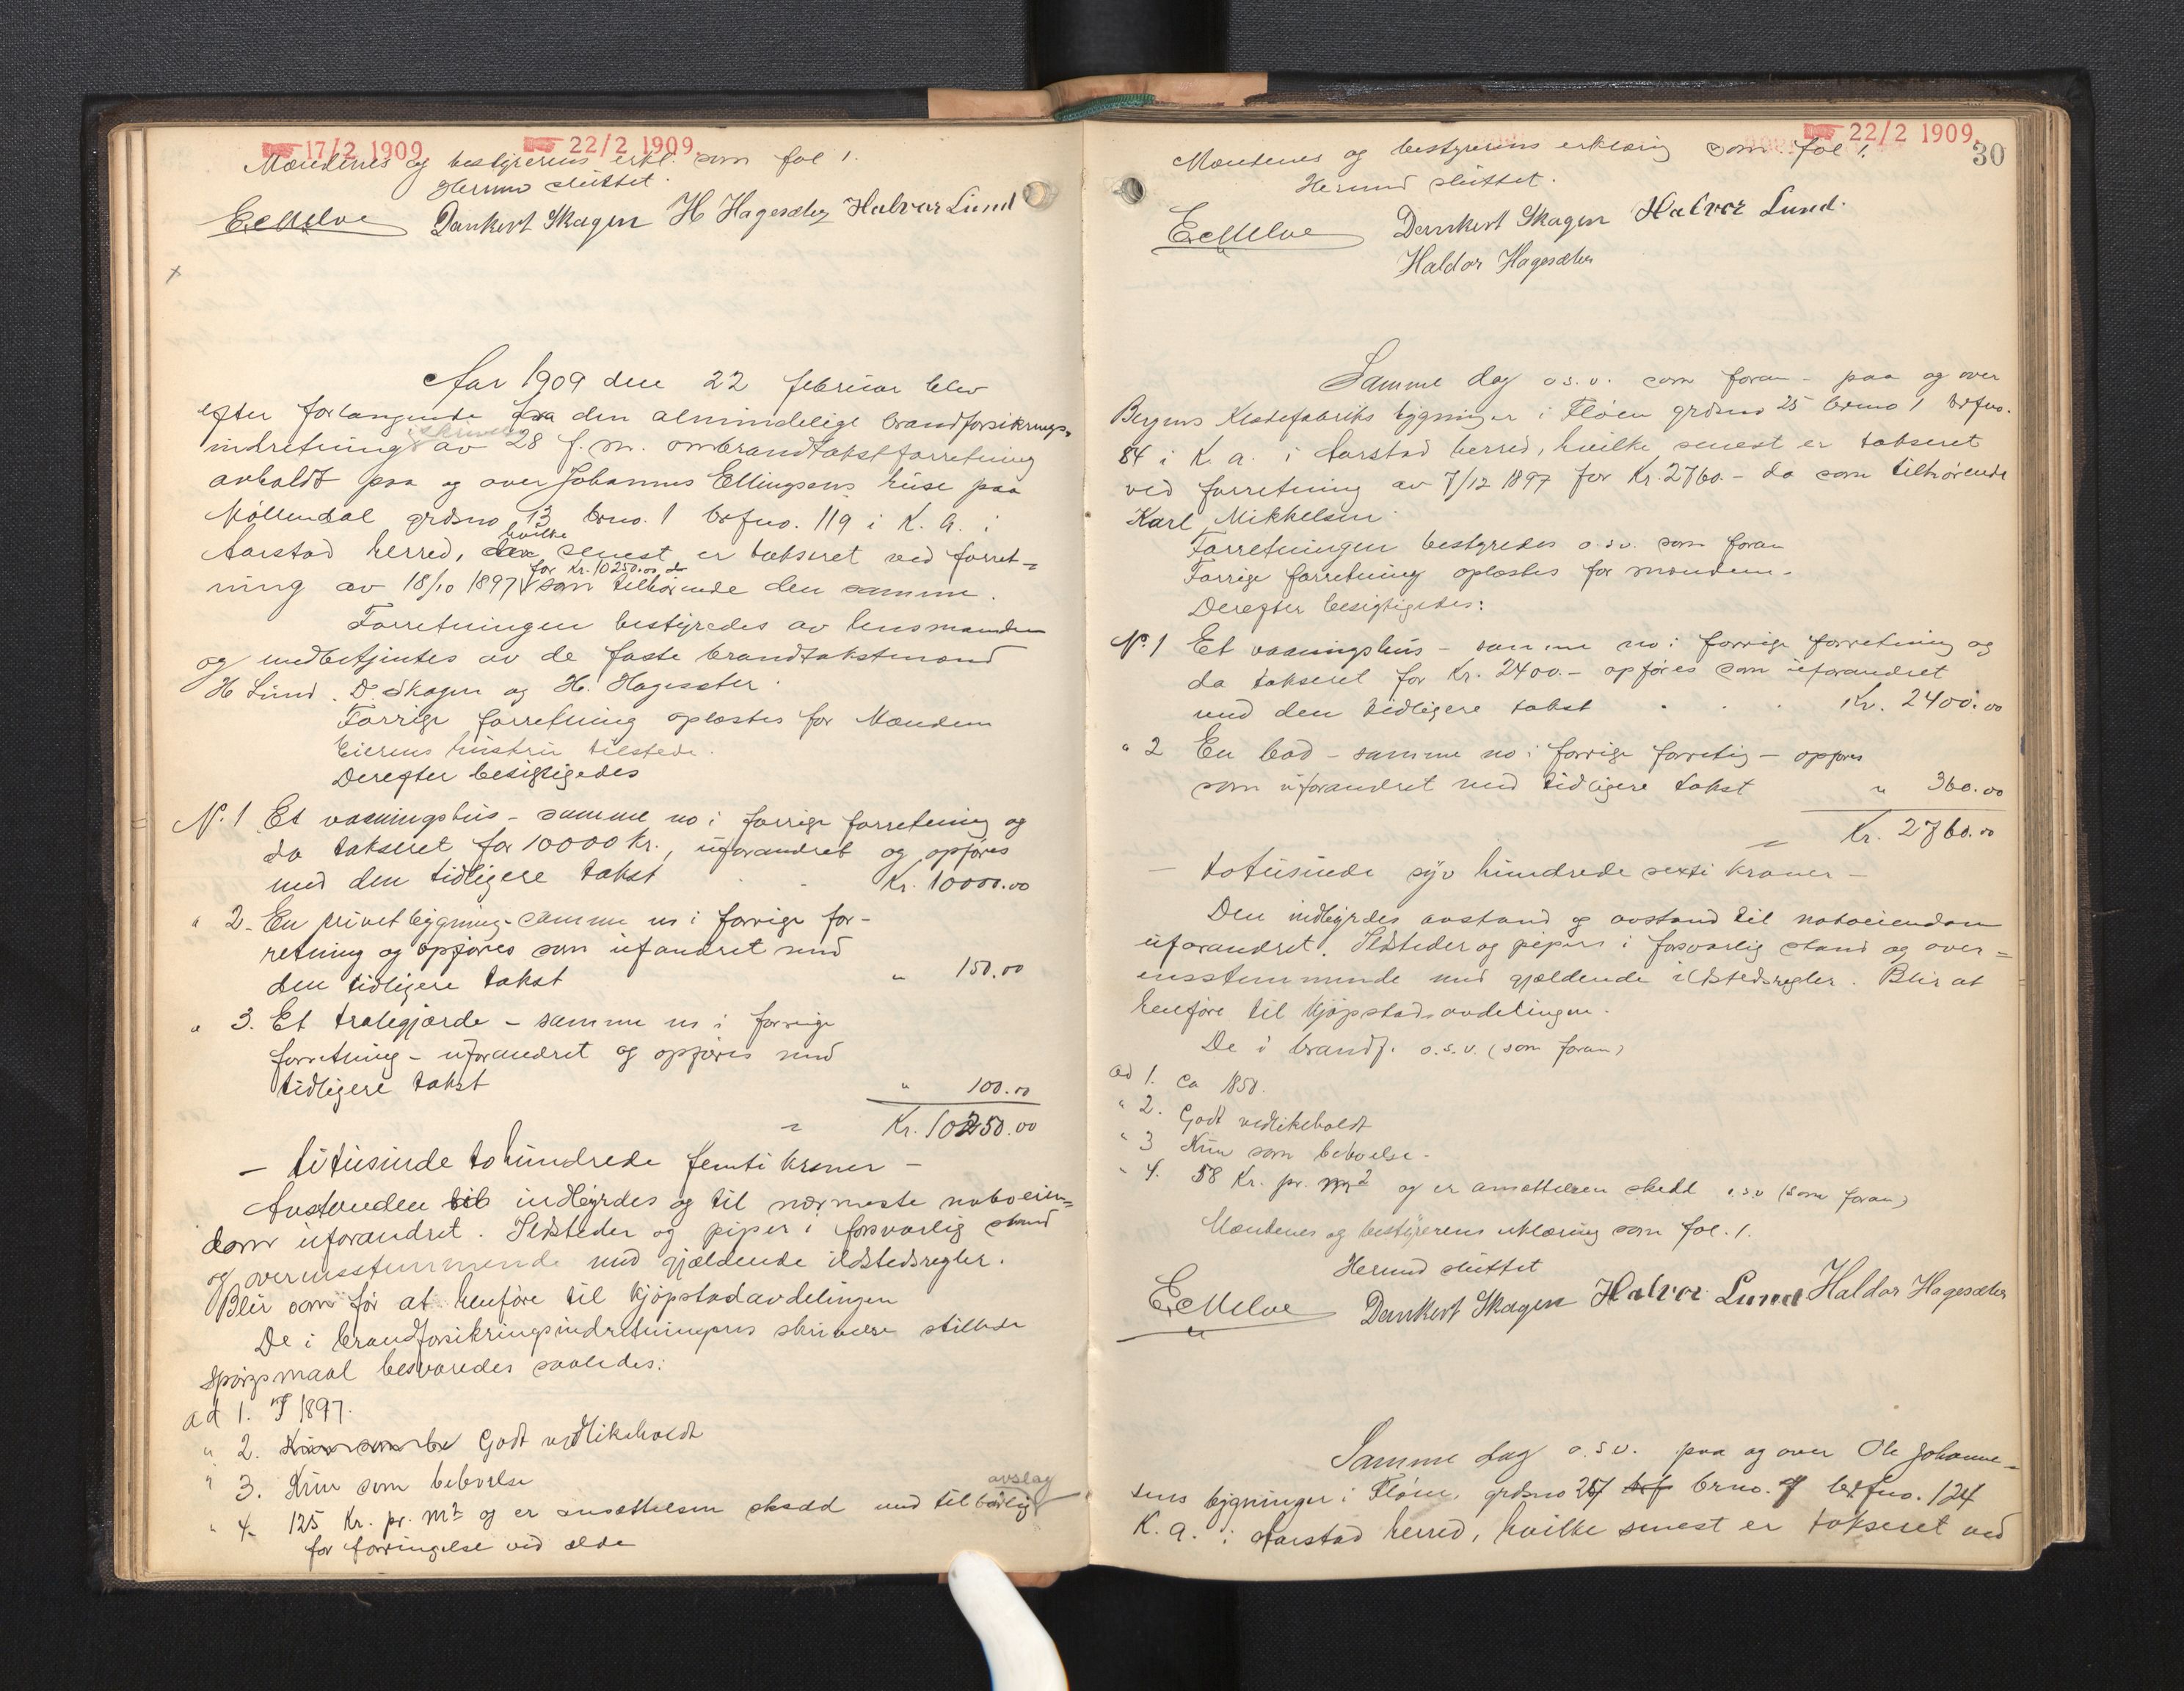 17/2 1909. 22/2 1909.
Mændenes og bestyrerens erkl. som fol 1.
Hermed sluttet.
E. Melve Dankert Skagen H Hagesæter Halvor Lund
x
Aar 1909 den 22 februar blev
efter forlangende fra den almindelige brandforsikrings-
indretning i skrivelse av 28 f. m. ombrandtakstforretning
avholdt paa og over Johannes Ellingsens huse paa
Möllendal grdsno 13 brno. 1 brfno. 119 i K. A. i
Aarstad herred, hvilke senest er takseret ved forret-
ning av 18/10 1897 for Kr. 10250.00 da som tilhörende den samme.
Forretningen bestyredes av lensmanden
og medbetjentes av de faste brandtakstmænd
H Lund. D. Skagen og H. Hagesæter.
Forrige forretning oplæstes for Mændene
Eierens hustru tilstede.
Derefter besigtigedes
No. 1 Et vaaningshus - samme no i forrige forretning og
da takseret for 10000 Kr., uforandret og opföres
med den tidligere takst . . Kr. 10000.00
" 2. En privetbygning - samme no i forrige for-
retning og opföres som ufandret med
den tidligere takst " 150.00
" 3. Et træhegjærde - samme no i forrige
forretning - uforandret og opföres med
tidligere takst " 100.00
= Kr. 10250.00
- titusinde to hundrede femti kroner -
Avstanden til indbyrdes og til nærmeste naboeien-
dom uforandret. Ildsteder og piper i forsvarlig stand
og overensstemmende med gjældende ildstedsregler.
Blir som för at henföre til kjöpstadavdelingen
De i brandforsikringsindretningens skrivelse stillede
spörgsmaal besvaredes saaledes:
ad 1. I 1897.
" 2. Kun som be Godt vedlikeholdt
" 3. Kun som beboelse
" 4. 125 Kr. pr. m2 og er ansættelsen skedd med tilbörlig avslag
for forringelse ved ælde
22/2 1909.
30
Mændenes og bestyrerens erklæring som fol 1.
Hermed sluttet.
E. Melve Dankert Skagen Halvor Lund.
Haldor Hagesæter
Samme dag o.s.v. som foran - paa og over
Bergens Kistefabriks bygninger i Flöen grdsno 25 brno 1 brfno.
84 i K. A. i Aarstad herred, hvilke senest er takseret
ved forretning av 7/12 1897 for Kr. 2760.- da som tilhörende
Karl Mikkelsen.
Forretningen bestyredes o.s.v. som foran
Forrige forretning oplæstes for mændene.
Derefter besigtigedes:
No. 1 Et vaaningshus - samme no i forrige forretning og
da takseret for Kr. 2400.- opföres som uforandret
med den tidligere takst . . . Kr. 2400.00
" 2 En bod - samme no i forrige forretig - opföres
som uforandret med tidligere takst " 360.00
= Kr. 2760.00
- totusinde syv hundrede sexti kroner -
Den indbyrdes avstand og avstand til naboeiendom
uforandret. Ildsteder og piper i forsvarlig stand og over-
ensstemmende med gjældende ildstedsregler. Blir at
henföre til kjöpstadsavdelingen.
De i brandf. o.s.v. (som foran)
ad 1. ca 1850.
" 2. Godt vedlikeholdt
" 3 Kun som beboelse.
" 4. 58 Kr. pr. m2 og er ansættelsen skedd o.s.v (som foran)
Mændenes og bestyrerens erklæring som fol. 1.
Hermed sluttet
E. Melve Dankert Skagen Halvor Lund Haldor Hagesæter
Samme dag o.s.v. paa og over Ole Johanne-
sens bygninger i Flöen, grdsno 25 brno. brfno. 124
K. A. i Aarstad herred, hvilke senest er takseret ved